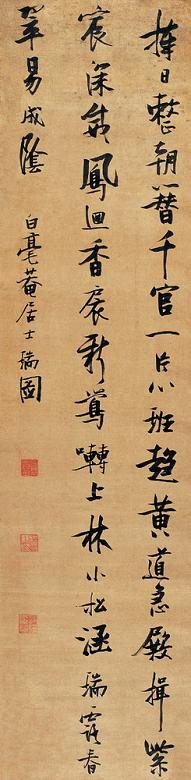 捧日整朝簪千官一片心班趨黃道急殿接紫
宸深威鳳迴香扆新鶯囀上林小松涵瑞露春
翠易成陰
白毫菴居士瑞圖